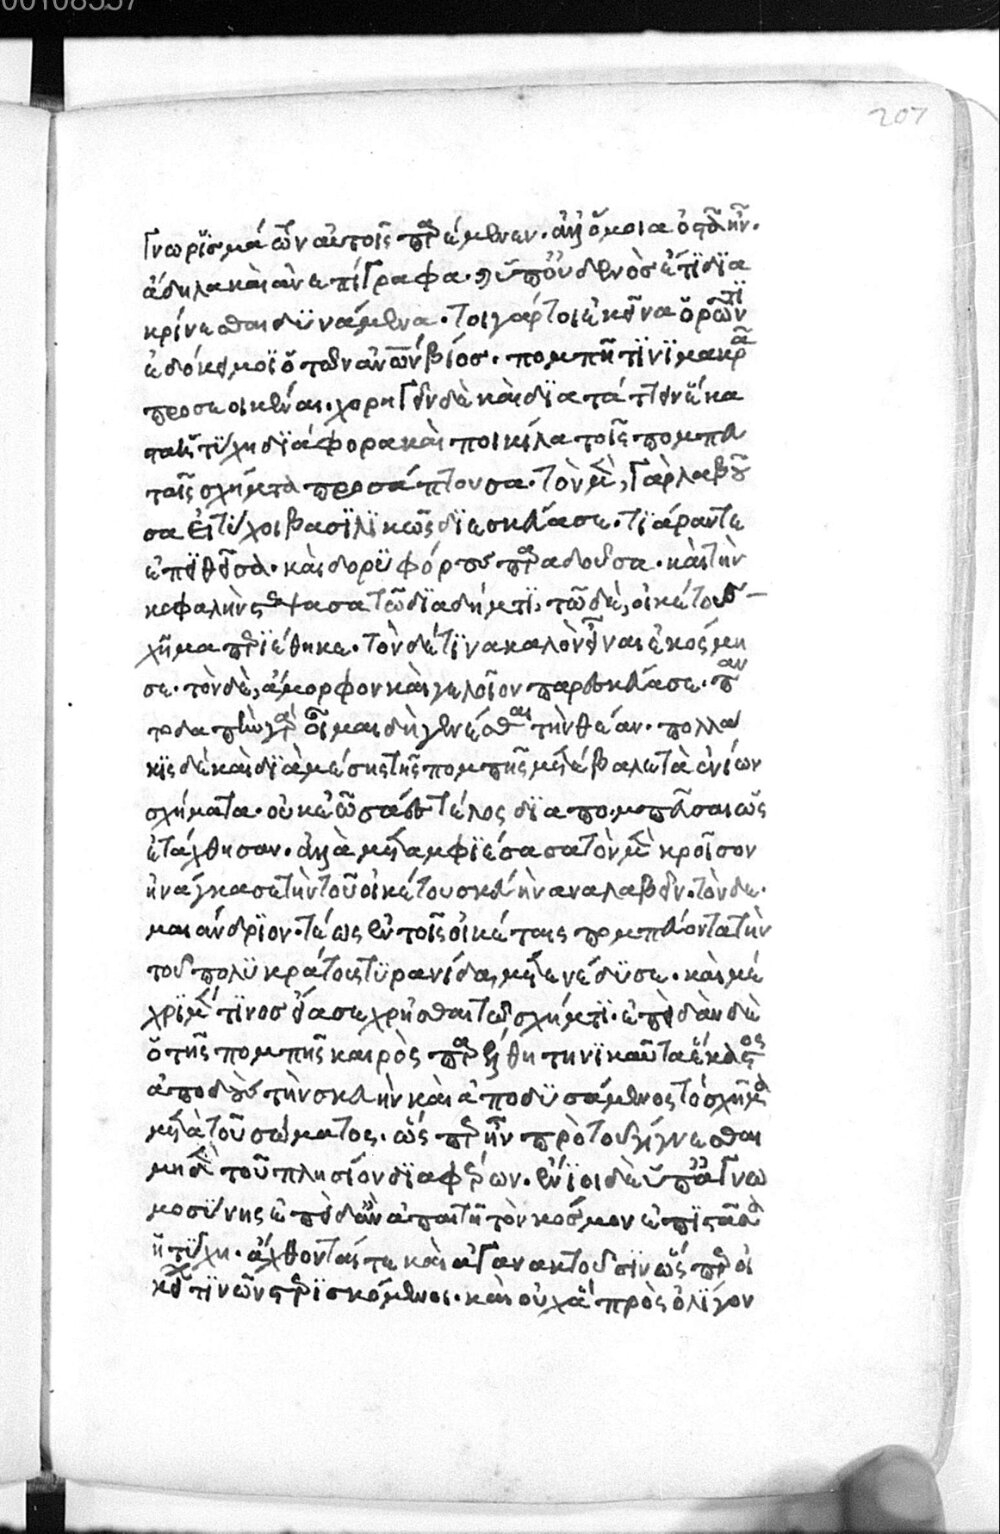 00108557
207
γνωρισμάτων αὐτοῖς παρέμενεν· ἀλλ' ὅμοια ὀστᾶ ἦν·
ἄδηλα καὶ ἀνεπίγραφα· ὑπ' οὐδενὸς ἔτι δια
κρίνεσθαι δυνάμενα· τοιγάρτοι ἐκεῖνα ὁρῶντι
ἐδόκει μοι ὁ τῶν ἀνθρώπων βίος· πομπῇ τινι μακρᾷ
προσεοικέναι· χορηγεῖν δὲ καὶ διατάττειν ἕκα
στα ἡ τύχη διάφορα καὶ ποικίλα τοῖς πομπευ
ταῖς σχήματα προσάπτουσα· τὸν μὲν γὰρ λαβοῦ
σα εἰ τύχοι βασιλικῶς διεσκεύασε· τιάραν τε
ἐπιθεῖσα· καὶ δορυφόρους παραδοῦσα· καὶ τὴν
κεφαλὴν στέψασα τῷ διαδήματι· τῷ δὲ, οἰκέτου σ–
χῆμα περιέθηκε· τὸν δέ τινα καλὸν εἶναι ἐκόσμη
σε· τὸν δὲ, ἄμορφον καὶ γελοῖον παρεσκεύασε· παν
τοδαπὴν γὰρ οἶμαι δὴ γενέσθαι τὴν θέαν· πολλά
κις δὲ καὶ διὰ μέσης τῆς πομπῆς μετέβαλε τὰ ἐνίων
σχήματα· οὐκ ἐῶσα ἐς τέλος διαπομπεῦσαι ὡς
ἐτάχθησαν· ἀλλὰ μεταμφιέσασα τὸν μὲν κροῖσον
ἠνάγκασε τὴν τοῦ οἰκέτου σκευὴν ἀναλαβεῖν· τὸν δὲ·
μαιάνδριον· τέως ἐν τοῖς οἰκέταις πομπεύοντα τὴν
τοῦ πολυκράτους τυραννίδα μετενέδυσε· καὶ μέ
χρι μέν τινος εἴασε χρῆσθαι τῷ σχήματι· ἐπειδὰν δὲ
ὁ τῆς πομπῆς καιρὸς παρέλθῃ τηνικαῦτα ἕκαστος
ἀποδοὺς τὴν σκευὴν καὶ ἀποδυσάμενος τὸ σχῆμα
μετὰ τοῦ σώματος· ὥσπερ ἦν πρὸ τοῦ γίγνεσθαι
μηδὲν τοῦ πλησίον διαφέρων· ἔνιοι δὲ ὑπ' ἀγνω
μοσύνης ἐπειδὰν ἀπαιτῇ τὸν κόσμον ἐπιστᾶσα
ἡ τύχη· ἄχθονταί τε καὶ ἀγανακτοῦσιν ὥσπερ οἰ
κείων τινῶν στερισκόμενοι· καὶ οὐχ ἃ πρὸς ὀλίγον